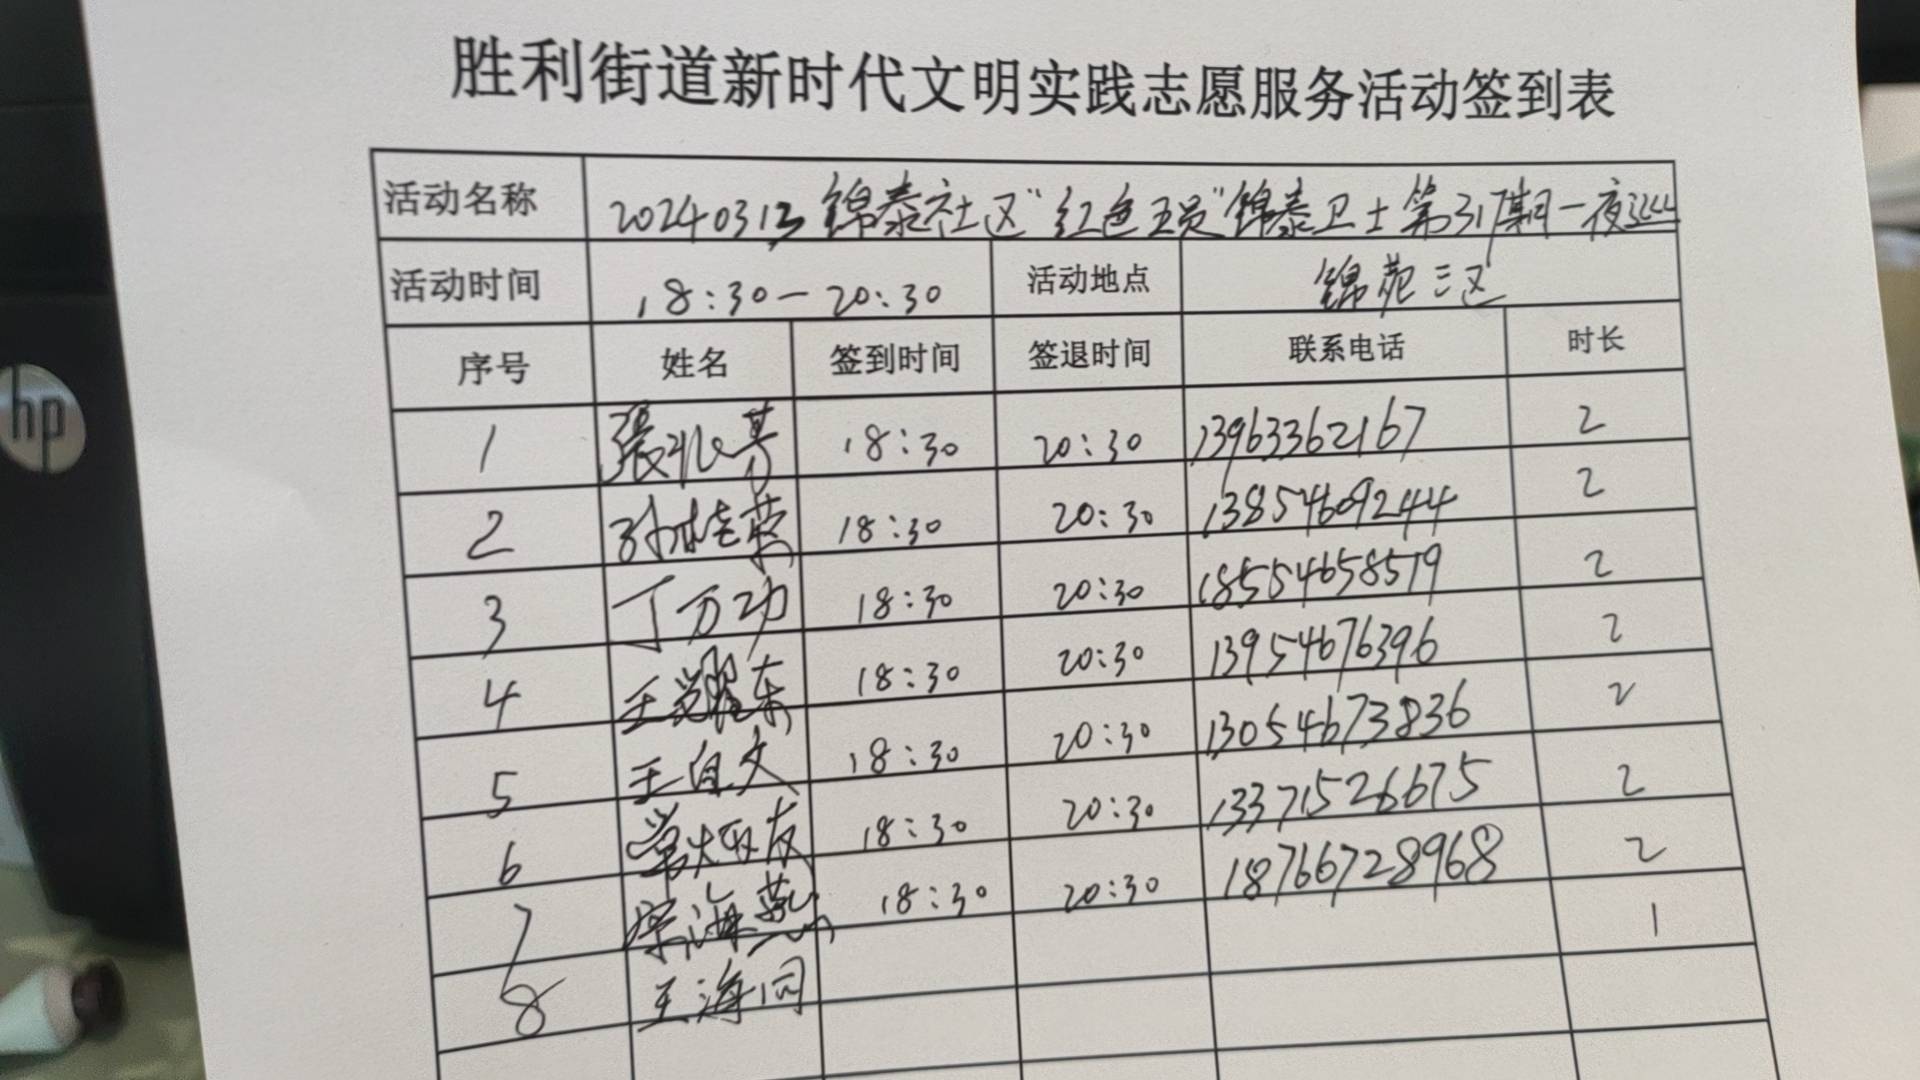 胜利街道新时代文明实践志愿服务活动签到表
活动名称 20240313 锦泰社区"红色五员"锦泰卫士第317期一夜巡
活动时间 18:30—20:30 活动地点 锦苑三区
序号 姓名 签到时间 签退时间 联系电话 时长
1 張 18:30 20:30 13963362167 2
2 孙桂英 18:30 20:30 13854609244 2
3 丁万功 18:30 20:30 18554658519 2
4 王耀东 18:30 20:30 13954676396 2
5 王自文 18:30 20:30 13054673836 2
6 常 友 18:30 20:30 13371526675 2
7 宋海燕 18:30 20:30 18766728968 2
8 王海 1
hp